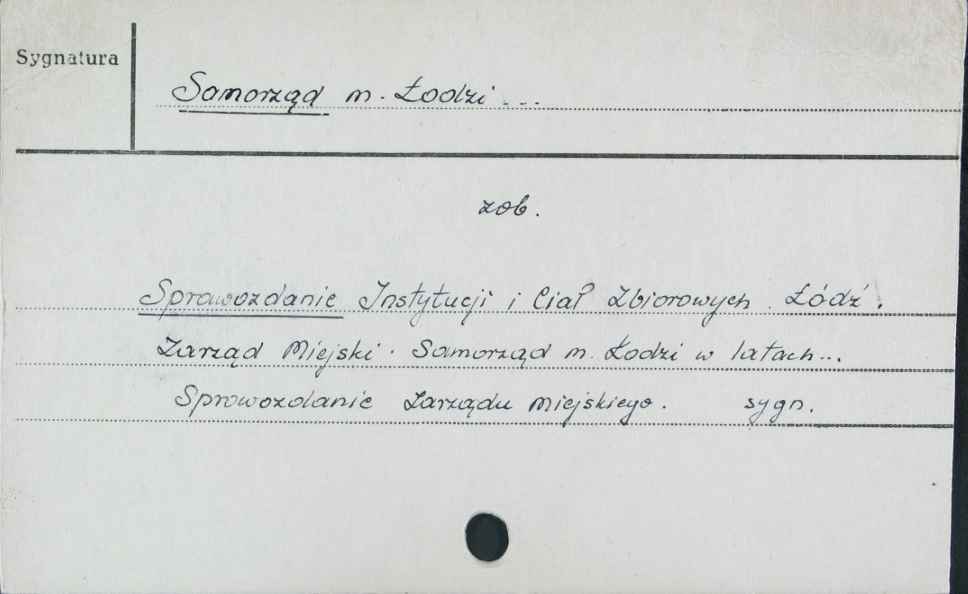 Sygnatura
Samorząd m. Łodzi...
zob.
Sprawozdanie Instytucji i Ciał Zbiorowych. Łódź.
Zarząd Miejski. Samorząd m. Łodzi w latach...
Sprawozdanie Zarządu Miejskiego. sygn.